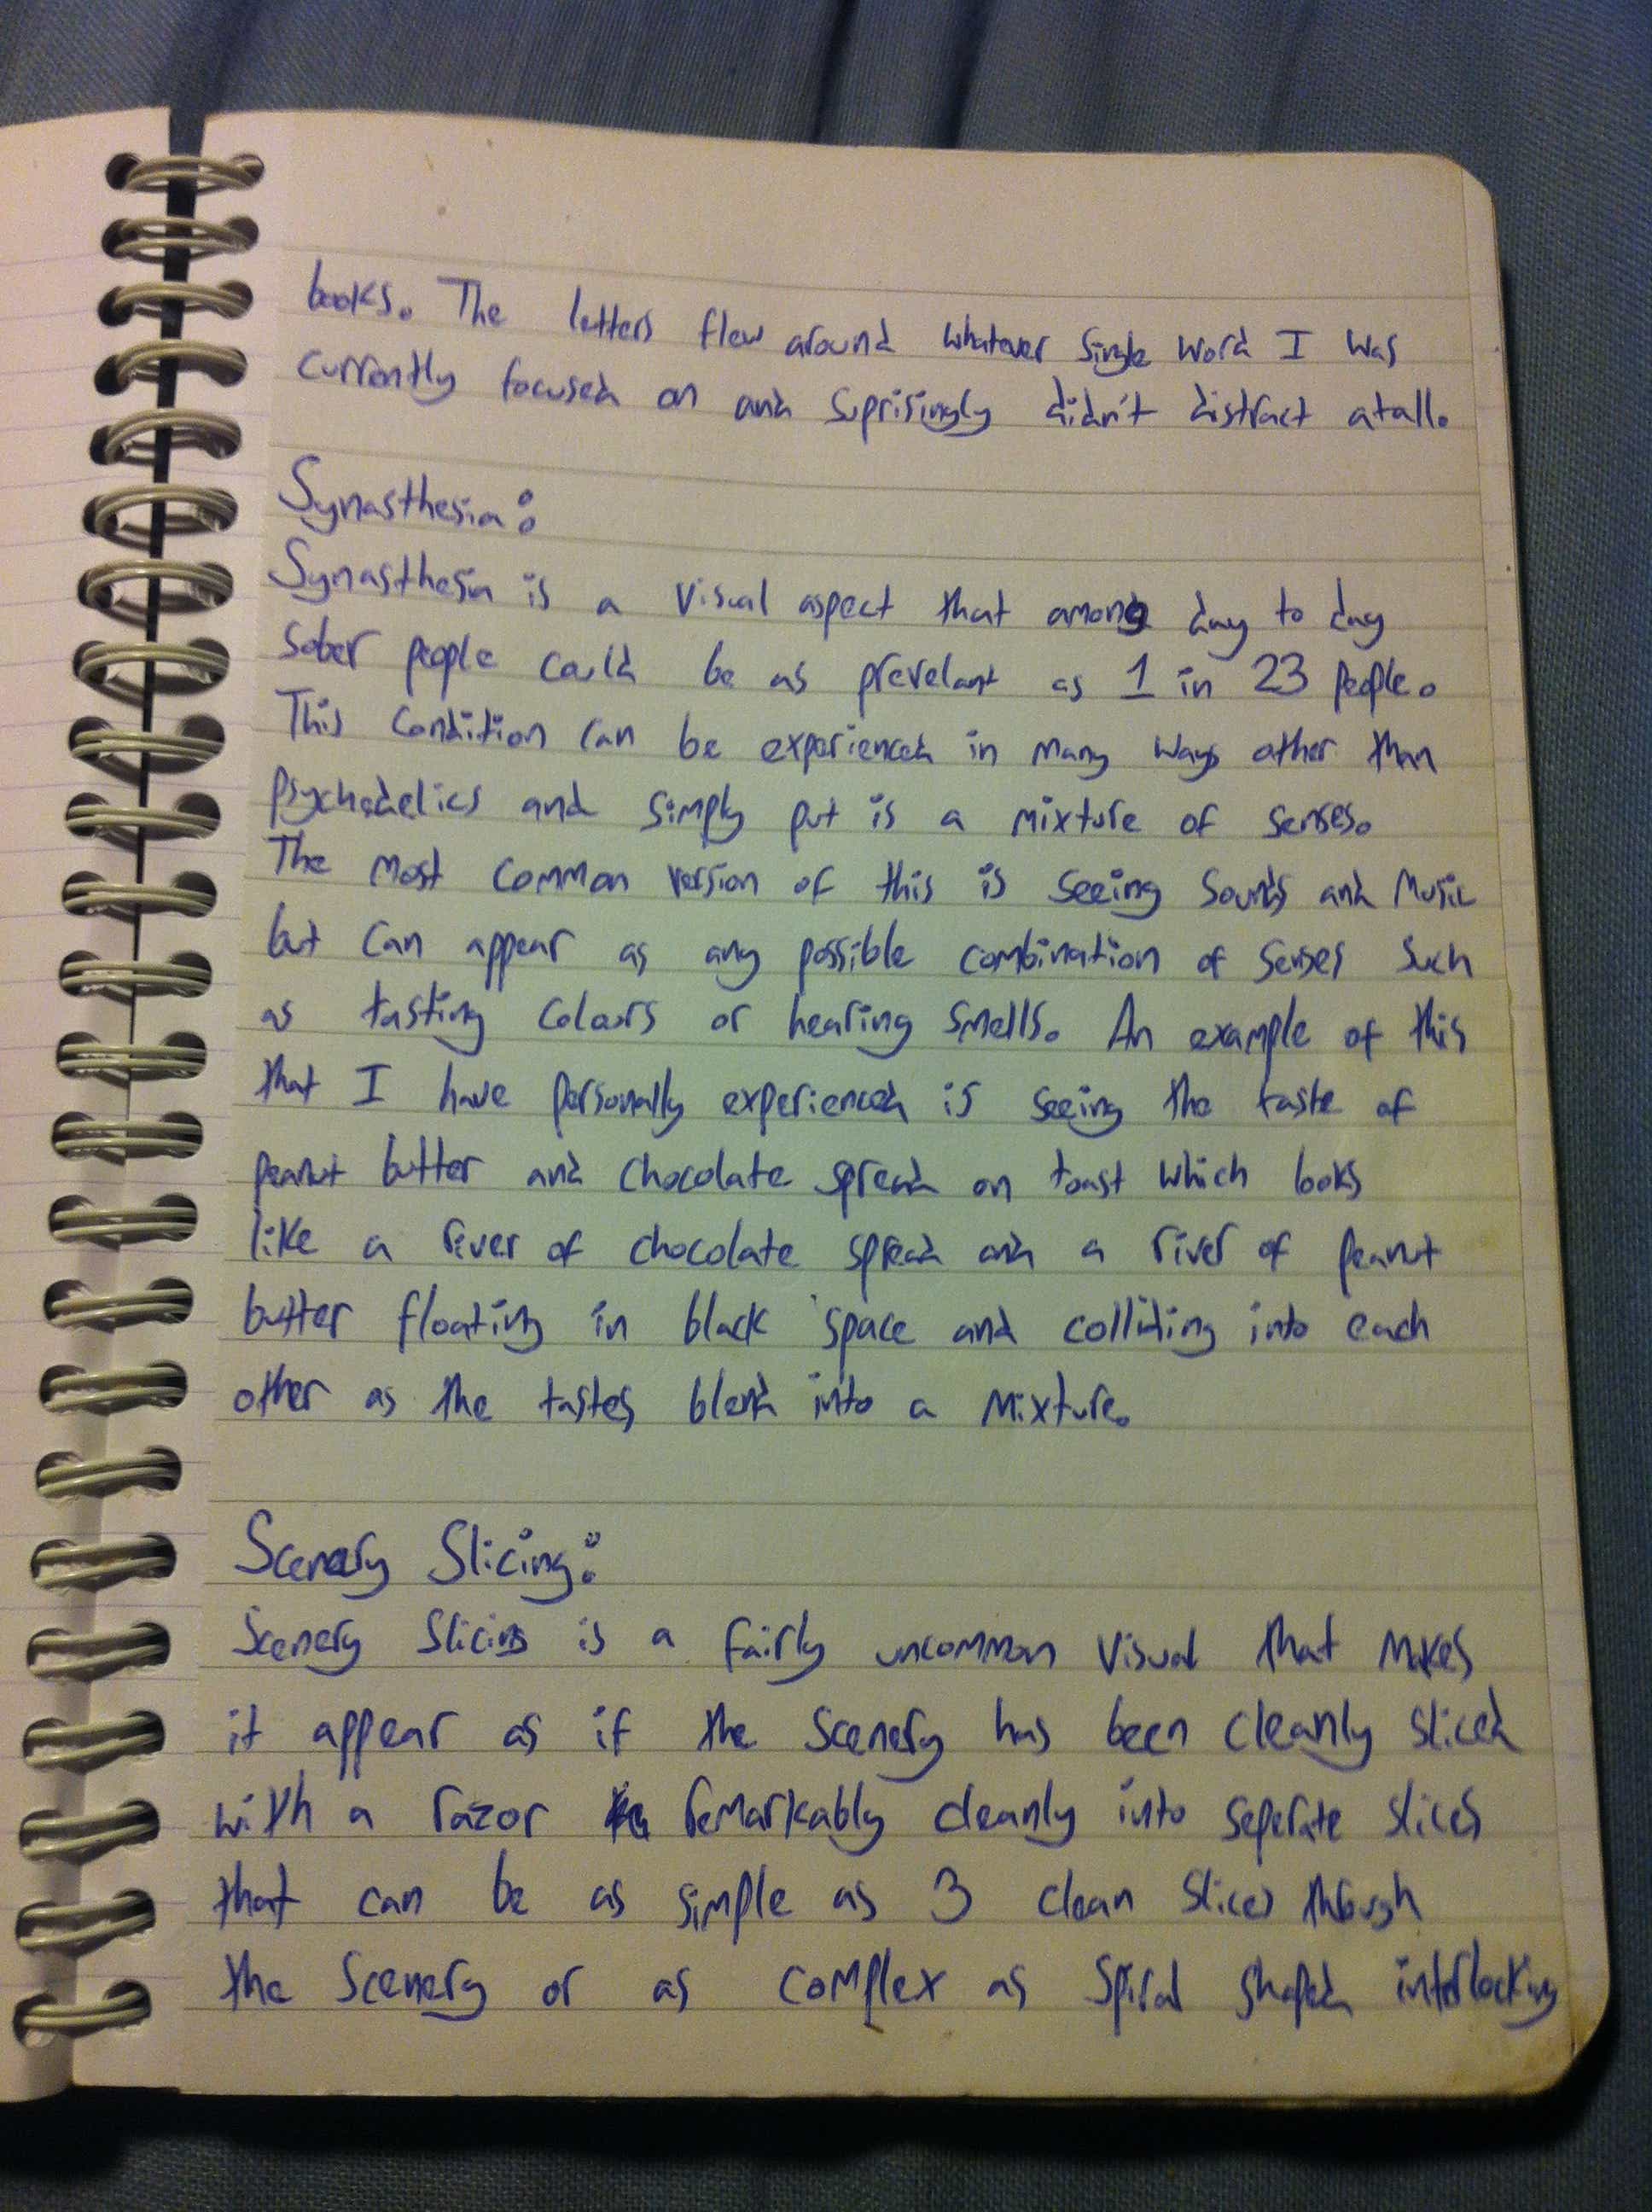 books. The letters flew around whatever single word I was
currently focused on and suprisingly didn't distract atall.
Synasthesia:
Synasthesia is a visual aspect that among day to day
sober people could be as prevelant as 1 in 23 people.
This condition can be experienced in many ways other than
psychedelics and simply put is a mixture of senses.
The most common version of this is seeing sounds and music
but can appear as any possible combination of senses such
as tasting colours or hearing smells. An example of this
that I have personally experienced is seeing the taste of
peanut butter and chocolate spread on toast which looks
like a river of chocolate spread and a river of peanut
butter floating in black space and colliding into each
other as the tastes blend into a mixture.
Scenery Slicing:
Scenery Slicing is a fairly uncommon visual that makes
it appear as if the scenery has been cleanly sliced
with a razor remarkably cleanly into seperate slices
that can be as simple as 3 clean slices through
the scenery or as complex as spiral shaped interlocking